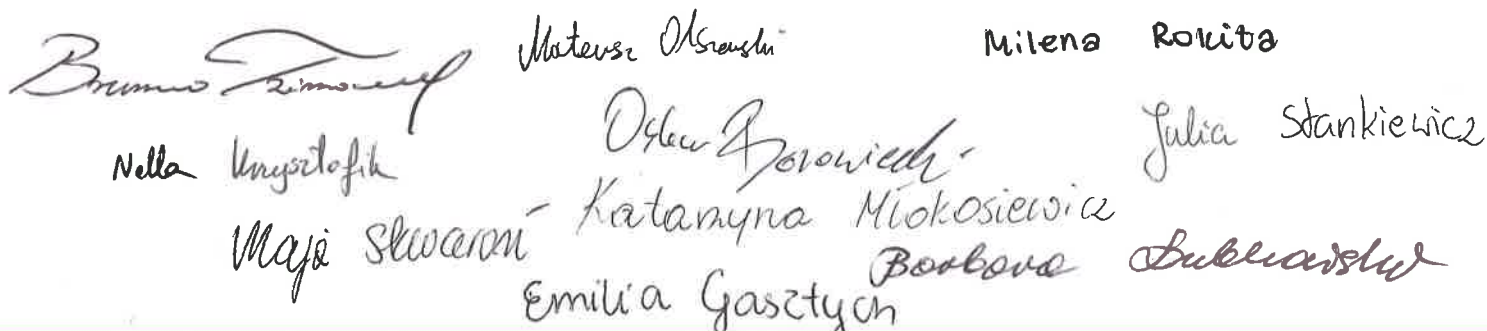 Bruno
Mateusz Olszewski
Milena Rokita
Nella Krzysztofik
Oskar Borowiecki
Julia Stankiewicz
Maja Skwaroń
Katarzyna Młokosiewicz
Barbara
Emilia Gasztych